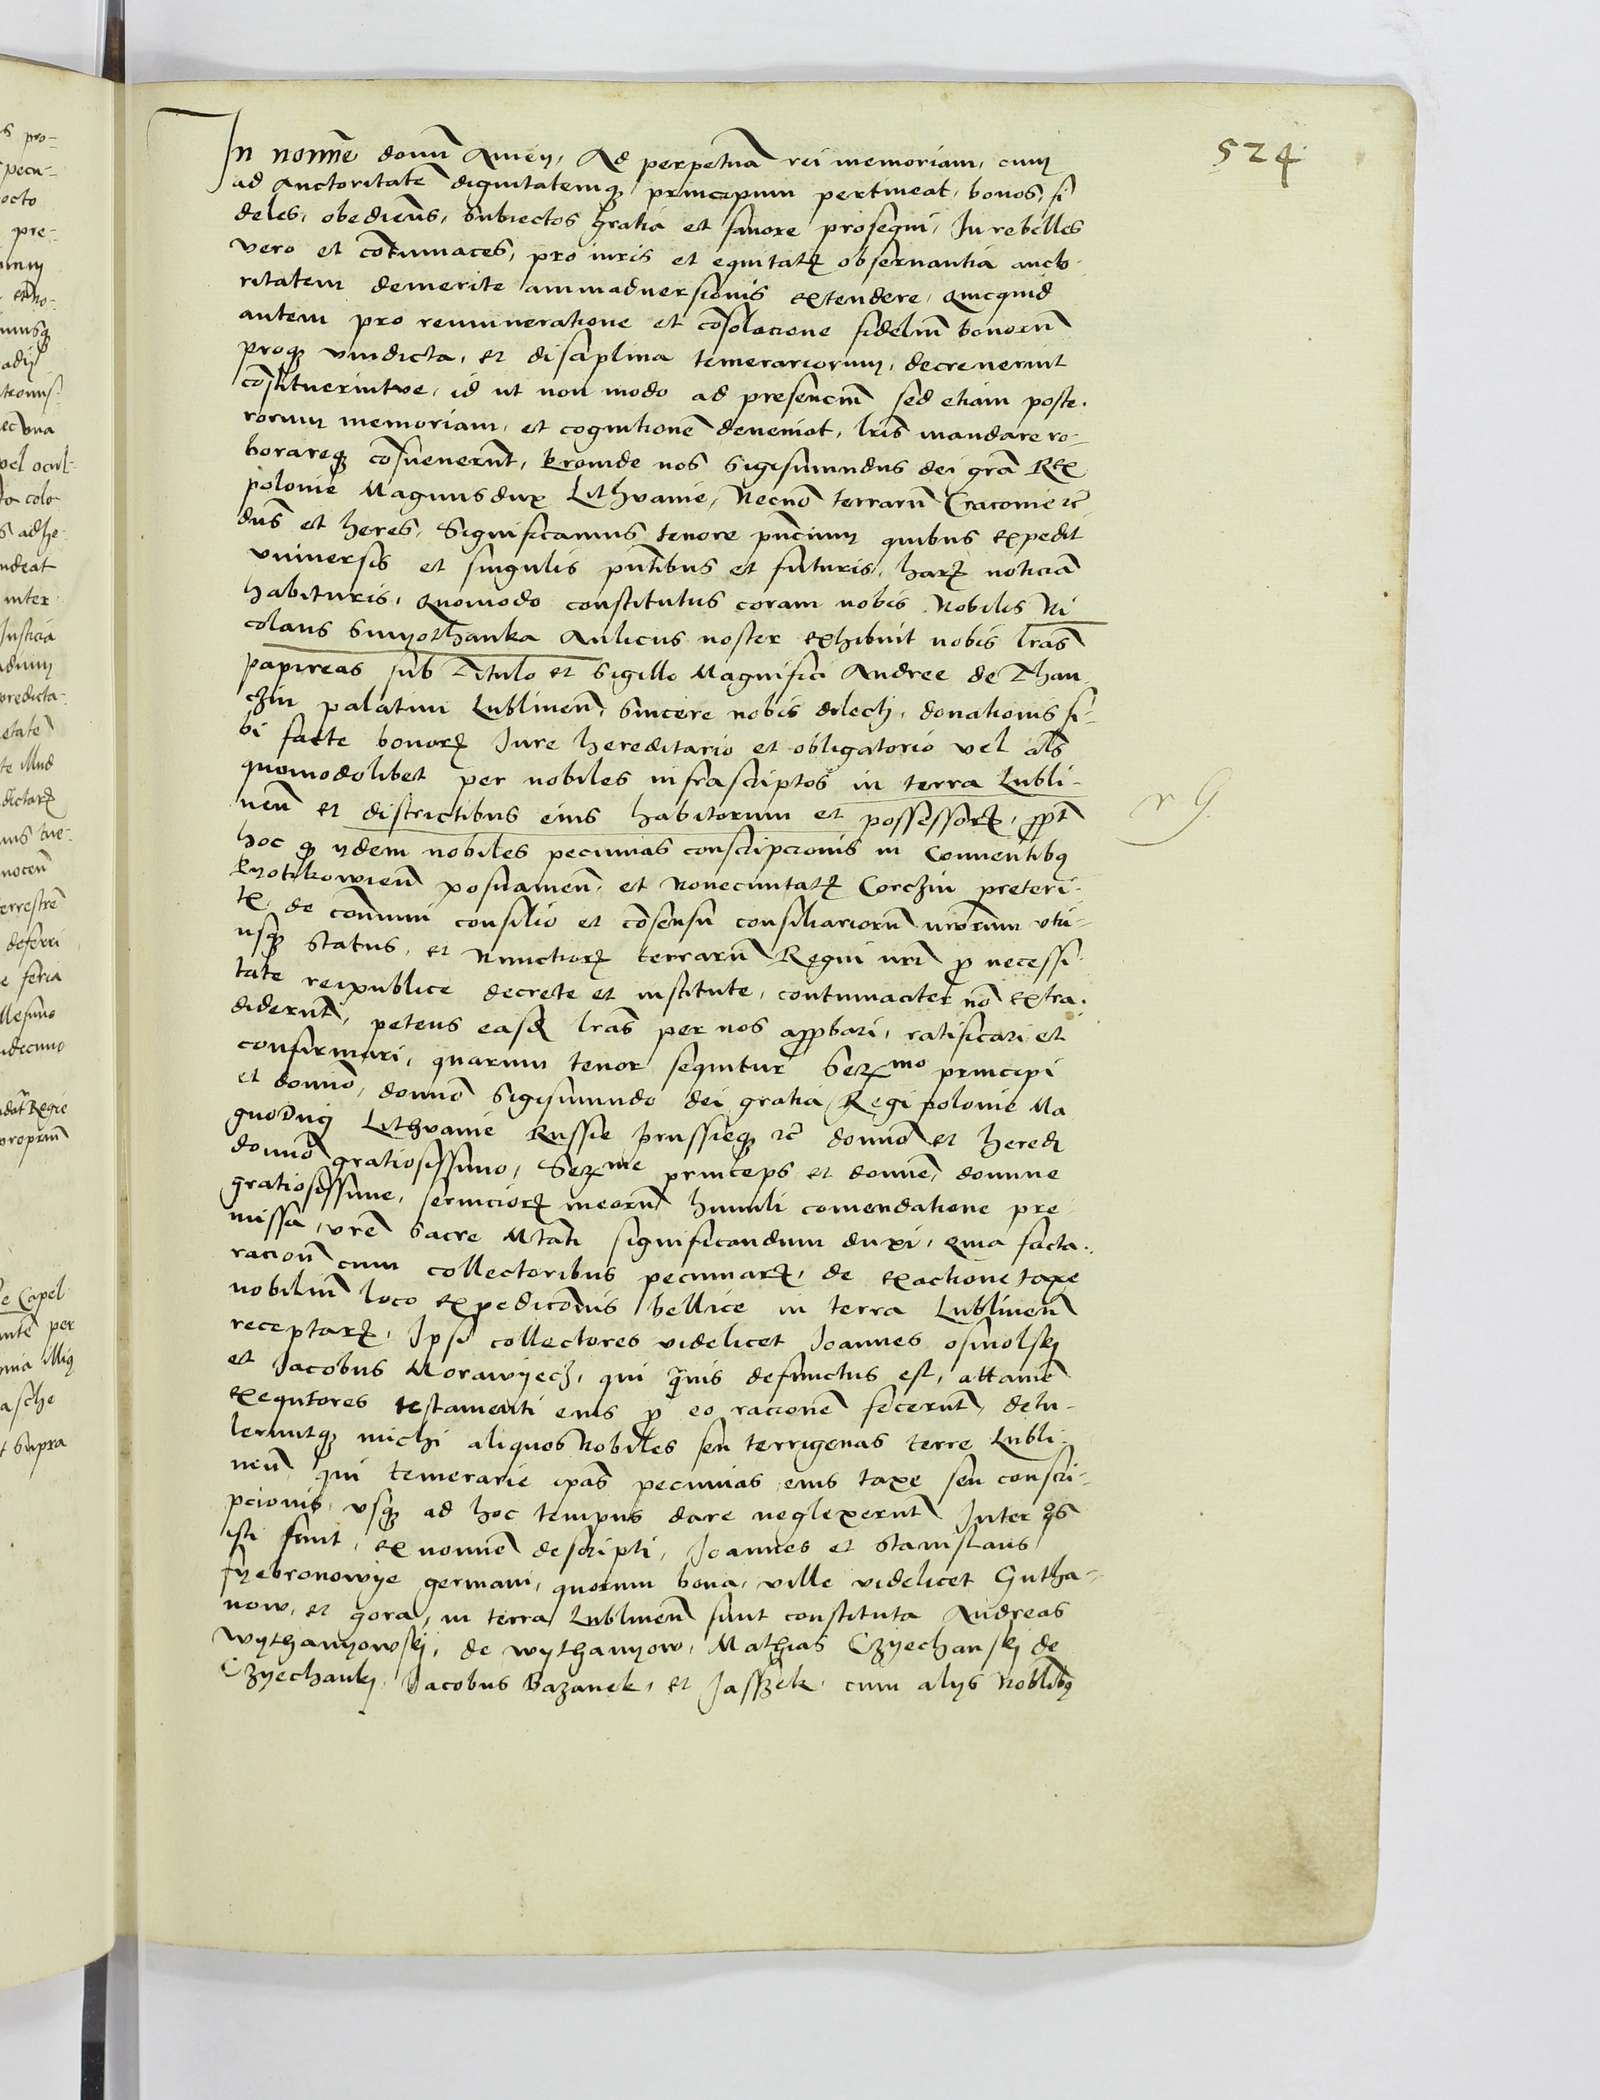 524
In nomīe domī Amen, Ad perpetuā rei memoriam, cum
ad auctoritatē dignitatemqꝫ principum pertineat, bonos, fi
deles, obediēns, subiectos gratia et fauore prosequi, In rebelles
vero et cōtumaces, pro iuris et equitatꝫ obseruantia aucto-
ritatem demerite animaduersionis extendere, quicquid
autem pro remuneratione et cōsolacione fideliū bonorū
proqꝫ vindicta, et disciplina temerariorum, decreuerint
cōstituerintue, id ut non modo ad presenciū sed etiam poste-
rorum memoriam, et cognitionē deueniat, lrīs mandare ro-
borareqꝫ cōsueuerūt, Proinde nos Sigismundus dei grā Rex
polonie Magnus dux Lithuanie, Necnō terrarū Cracouie ꝛc̄
dn̄s et heres, Significamus tenore pn̄cium quibus expedit
vniuersis et singulis pn̄tibus et futuris, harꝫ noticiā
habituris, Quomodo constitutus coram nobis Nobilis Ni
colaus Smyothanka Aulicus noster exhibuit nobis lrās
papireas sub Titulo et Sigillo Magnifici Andree de Than
czin palatini Lublineñ, Sincere nobis dilecti, donationis si-
bi facte bonorꝫ Iure hereditario et obligatorio vel al̄s
quomodolibet per nobiles infrascriptos in terra Lubli-
neñ et districtibus eius habitorum et possessorꝫ, ꝓpt
hoc ꝙ ydem nobiles pecunias conscripcionis in Conuentibꝯ
Pyotrkowieñ posnanieñ, et Nouecuitatꝫ Corczin preteri-
tꝫ de cōmuni consilio et cōsensu consiliariorū nrōrum vtri-
usqꝫ status, et Nunctiorꝫ terrarū Regni nrī ꝓ necessi
tate reipublice decrete et institute, contumaciter nō extra-
diderūt, petens easdē lrās per nos approbari, ratificari et
confirmari, quarum tenor sequitur Serꝫmo principi
et domīo, domīo Sigismundo dei gratia Regi polonie Ma
gno Duci Lithuanie Russie prussieqꝫ ꝛc̄ domīo et heredi
domīo gratiosissimo, Serꝫme princeps et domīe, domine
gratiosissime, seruiciorꝫ meorū humili comendatione pre-
missa, vrē Sacre Mtati significandum duxi, quia facta
racioñ cum collectoribus pecuniarꝫ, de exactione taxe
nobiliū loco expedicōnis bellice in terra Lublineñ
receptarꝫ, Ipsi collectores videlicet Ioannes osmolskj
et Iacobus Morawyecz, qui ꝗuis defunctus est, attamē
exequtores testamenti eius ꝓ eo racionē fecerūt, detu-
leruntqꝫ michi aliquos Nobiles seu terrigenas terre Lubli-
neñ qui temerarie ipās pecunias eius taxe seu conscri-
pcionis, vsqꝫ ad hoc tempus dare neglexerūt Inter qōs
isti sunt, ex nomīe descripti, Ioannes et Stanislaus
syebronowye germani, quorum bona, ville videlicet Gutha-
now, et gora, in terra Lublineñ sunt constituta Andreas
Wythanyowskj, de wythanyow, Mathias Czyechanskj de
Czyechankj Iacobus Bazanek, et Jasszek cum alijs Nobilibꝯ